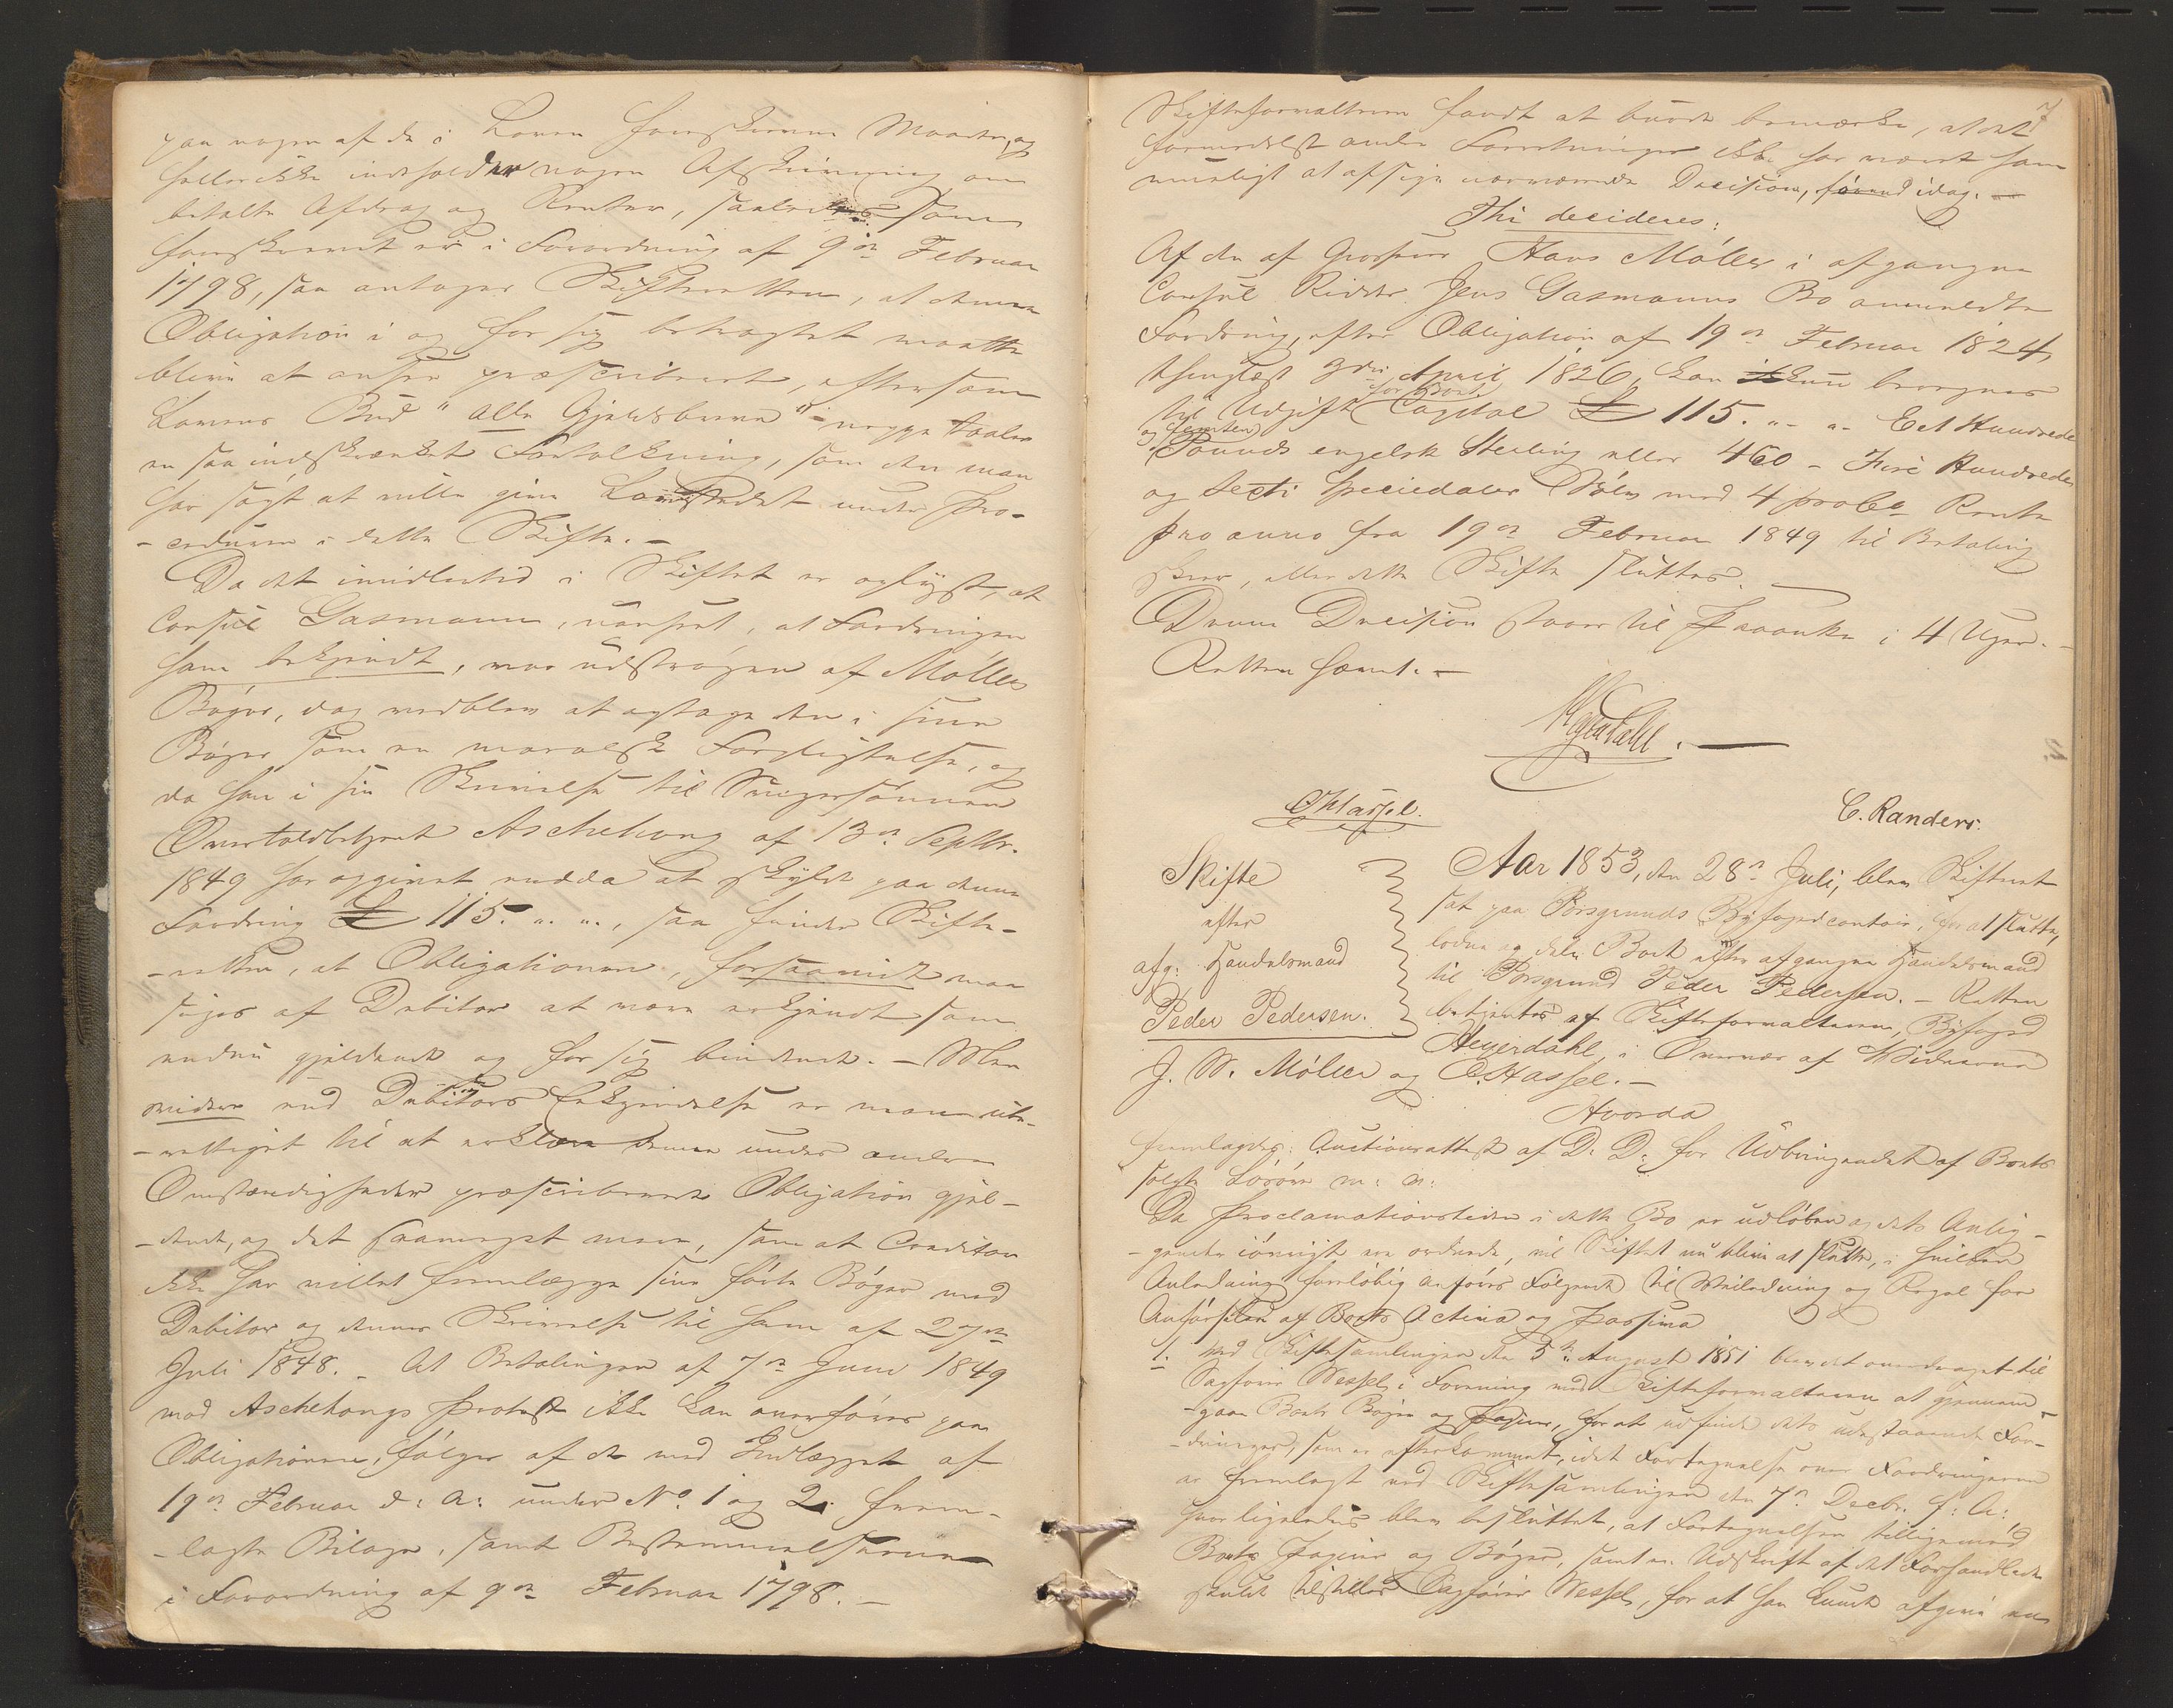 paa nogen af de i Loven foreskrevne Maader, og
heller ikke indeholder nogen Afskrivning om
betalte Afdrag og Renter, saaledes som
foreskrevet er i Forordning af 9de Februar
1798, saa antager Skifteretten, at denne
Obligation i og for sig betragtet maatte
blive at ansee præscriberet, eftersom
Lovens Bud "alle Gjeldsbreve" neppe taaler
en saa indskrænket Fortolkning, som den man
har søgt at ville give Lovstedet under Pro-
-ceduren i dette Skifte. -
Da det imidlertid i Skiftet er oplyst, at
Consul Gasmann, uanseet, at Fordringen
ham bekjendt, var udstrøgen af Møllers
Bøger, dog vedblev at optage den i sine
Bøger som en moralsk Forpligtelse, og
da han i sin Skrivelse til Svigersønnen
Overtoldbetjent Aschehoug af 13de Septbr.
1849 har opgivet endda at skylde paa denne
Fordring £ 115. " " , saa finder Skifte-
-retten, at Obligationen, forsaavidt maa
siges af Debitor at være erkjendt som
endnu gjeldende og for sig bindende. - Men
videre end Debitors Erkjendelse er man ube-
-rettiget til at erklære denne under andre
Omstændigheder præscriberede Obligation gjel-
-dende, og det saameget mere, som at Creditor
ikke har villet fremlægge sine førte Bøger med
Debitor og dennes Skrivelse til ham af 27de
Juli 1848. - At Betalingen af 7de Juni 1849
mod Aschehougs Protest ikke kan overføres paa
Obligationen, følger af de med Indlægget af
19de Februar d: A: under No. 1 og 2. frem-
-lagte Bilage, samt Bestemmelserne
i Forordning af 9de Februar 1798. -
7
Skifteforvalteren fandt at burde bemærke, at det
formedelst andre Forretninger ikke har været ham
mueligt at afsige nærværende Decision, førend idag. -
Thi decideres:
Af den af Grosserer Hans Møller i afgangne
Consul Ridder Jens Gasmanns Bo anmeldte
Fordring, efter Obligation af 19de Februar 1824,
thinglæst 3die April 1826, kan ikkun beregnes
til Udgift for Boet Capital £ 115. " - " - Eet Hundrede
og femten Pounds engelsk Sterling eller 460 - Fire Hundrede
og sexti Speciedaler Sølv med 4 proCto Rente
pro anno fra 19de Februar 1849 til Betaling
skeer, eller dette Skifte sluttes. -
Denne Decision staaer til Paaanke i 4 Uger. -
Retten hævet. -
Heyerdahl. -
C Hassel.
C. Randers.
Skifte
efter
afg: Handelsmand
Peder Pedersen.
Aar 1853, den 28de Juli, blev Skifteret
sat paa Porsgrunds Byfogedcontoir, for at slutte,
lodne og dele Boet efter afgangne Handelsmand
til Porsgrund Peder Pedersen. - Retten
betjentes af Skifteforvalteren, Byfoged
Heyerdahl, i Overvær af Vidnerne
J. N. Møller og C. Hassel. -
Hvorda
fremlagdes: Auctionsattest af D: D: for Udbringendet af Boets
solgte Løsøre m: m:
Da Proclamationstiden i dette Bo er udløben og dets Anlig-
-gender iøvrigt ere ordnede, vil Skiftet nu blive at slutte, i hvilken
Anledning foreløbig anføres Følgende til Veiledning og Regel for
Anførselen af Boets Activa og Passiva
1. Ved Skiftesamlingen den 5te August 1851 blev det overdraget til
Sagfører Wessel i Forening med Skifteforvalteren at gjennem-
-gaae Boets Bøger og Papirer, for at udfinde dets udestaaende For-
-dringer, som er efterkommet, idet Fortegnelse over Fordringerne
er fremlagt ved Skiftesamlingen den 7de Decbr. f: A:
hvor ligeledes blev besluttet, at Fortegnelsen tilligemed
Boets Papirer og Bøger, samt en Udskrift af det Forhandlede
skulde tilstilles Sagfører Wessel, for at han kunde afgive en